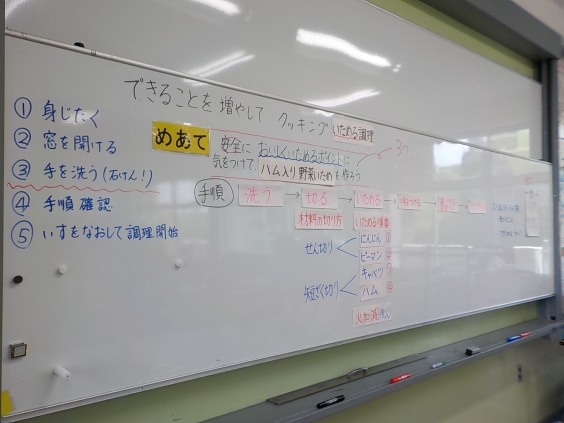 できることを増やして クッキング いためる調理
① 身じたく
② 窓を開ける
③ 手を洗う(石けん!)
④ 手順確認
⑤ いすをなおして調理開始
めあて
安全に おいしくいためるポイントに
気をつけて、ハム入り野菜いためを作ろう
3つ
手順 洗う → 切る → いためる →
材料の切り方
せん切り
短ざく切り
いためる順番
にんじん ①
ピーマン ②
キャベツ ③
ハム ④
火加減(強火)